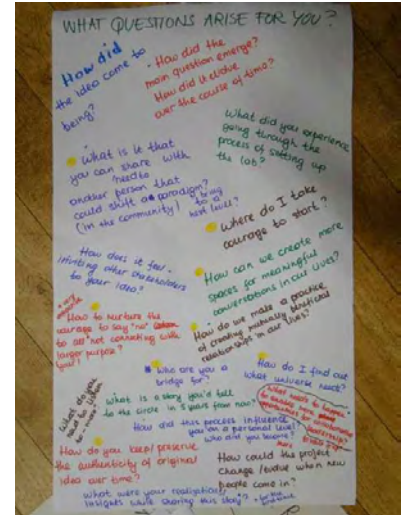 WHAT QUESTIONS ARISE FOR YOU?
How did
the idea come to
being?
How did the
main question emerge?
How did it evolve
over the course of time?
What did you experience
going through the
process of setting up
the lab?
What is it that
you can share with
another person that
could shift a paradigm?
(in the community)
to bring
to a
next level?
Where do I take
courage to start?
How does it feel
inviting other stakeholders
to your idea?
How can we create more
spaces for meaningful
conversations in our lives?
How to nurture the
courage to say "no"
to not connecting with
larger purpose?
How do we make a practice
of creating mutually beneficial
relationships in our lives?
Who are you a
bridge for?
How do I find out
what universe needs?
What do you
need to listen
to more
What is a story you'd tell
to the circle in 5 years from now?
What needs to happen
opportunities for collaborative
leadership?
How did this process influence
you on a personal level?
Who did you become?
How do you keep/preserve
the authenticity of original
idea over time?
How could the project
change/evolve when new
people come in?
What were your realisations,
insights while sharing this story?